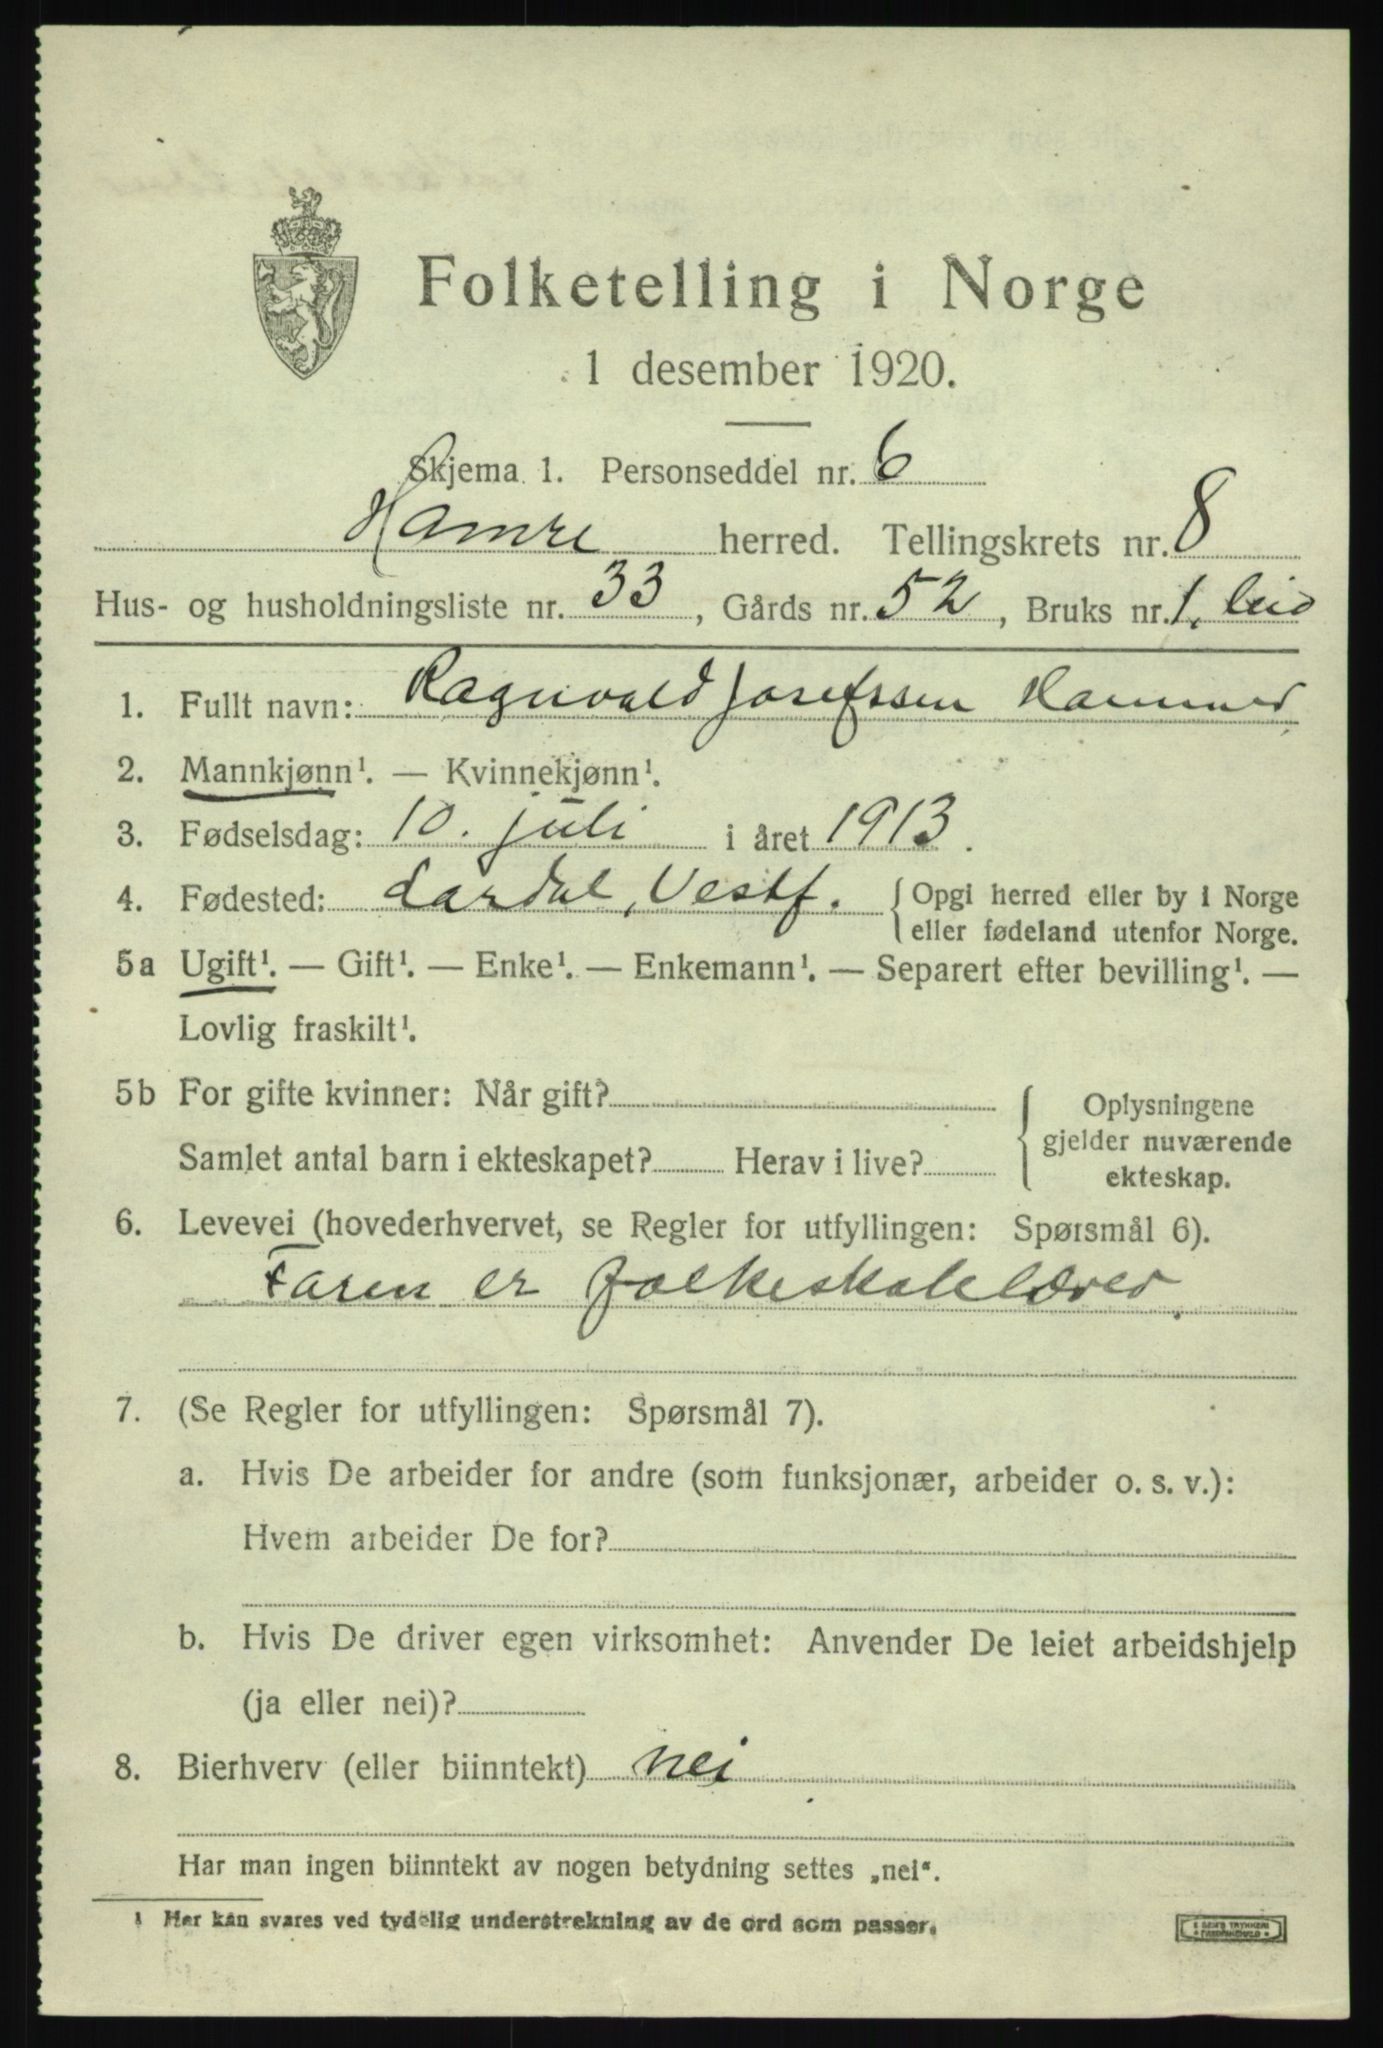 Folketelling i Norge
1 desember 1920.
Skjema 1. Personseddel nr. 6
Hamre herred. Tellingskrets nr. 8
Hus- og husholdningsliste nr. 33, Gårds nr. 52, Bruks nr. 1.
1. Fullt navn: Ragnvald Josefssen Hammer
2. Mannkjønn¹. — Kvinnekjønn¹.
3. Fødselsdag: 10. juli i året 1913.
4. Fødested: Lardal, Vestf. { Opgi herred eller by i Norge
eller fødeland utenfor Norge.
5a Ugift¹. — Gift¹. — Enke¹. — Enkemann¹. — Separert efter bevilling¹. —
Lovlig fraskilt¹.
5b For gifte kvinner: Når gift?
Samlet antal barn i ekteskapet? Herav i live?
{ Oplysningene
gjelder nuværende
ekteskap.
6. Levevei (hovederhvervet, se Regler for utfyllingen: Spørsmål 6).
Faren er folkeskolelærer.
7. (Se Regler for utfyllingen: Spørsmål 7).
a. Hvis De arbeider for andre (som funksjonær, arbeider o. s. v.):
Hvem arbeider De for?
b. Hvis De driver egen virksomhet: Anvender De leiet arbeidshjelp
(ja eller nei)?
8. Bierhverv (eller biinntekt) nei
Har man ingen biinntekt av nogen betydning settes „nei“.
1 Her kan svares ved tydelig understrekning av de ord som passer.